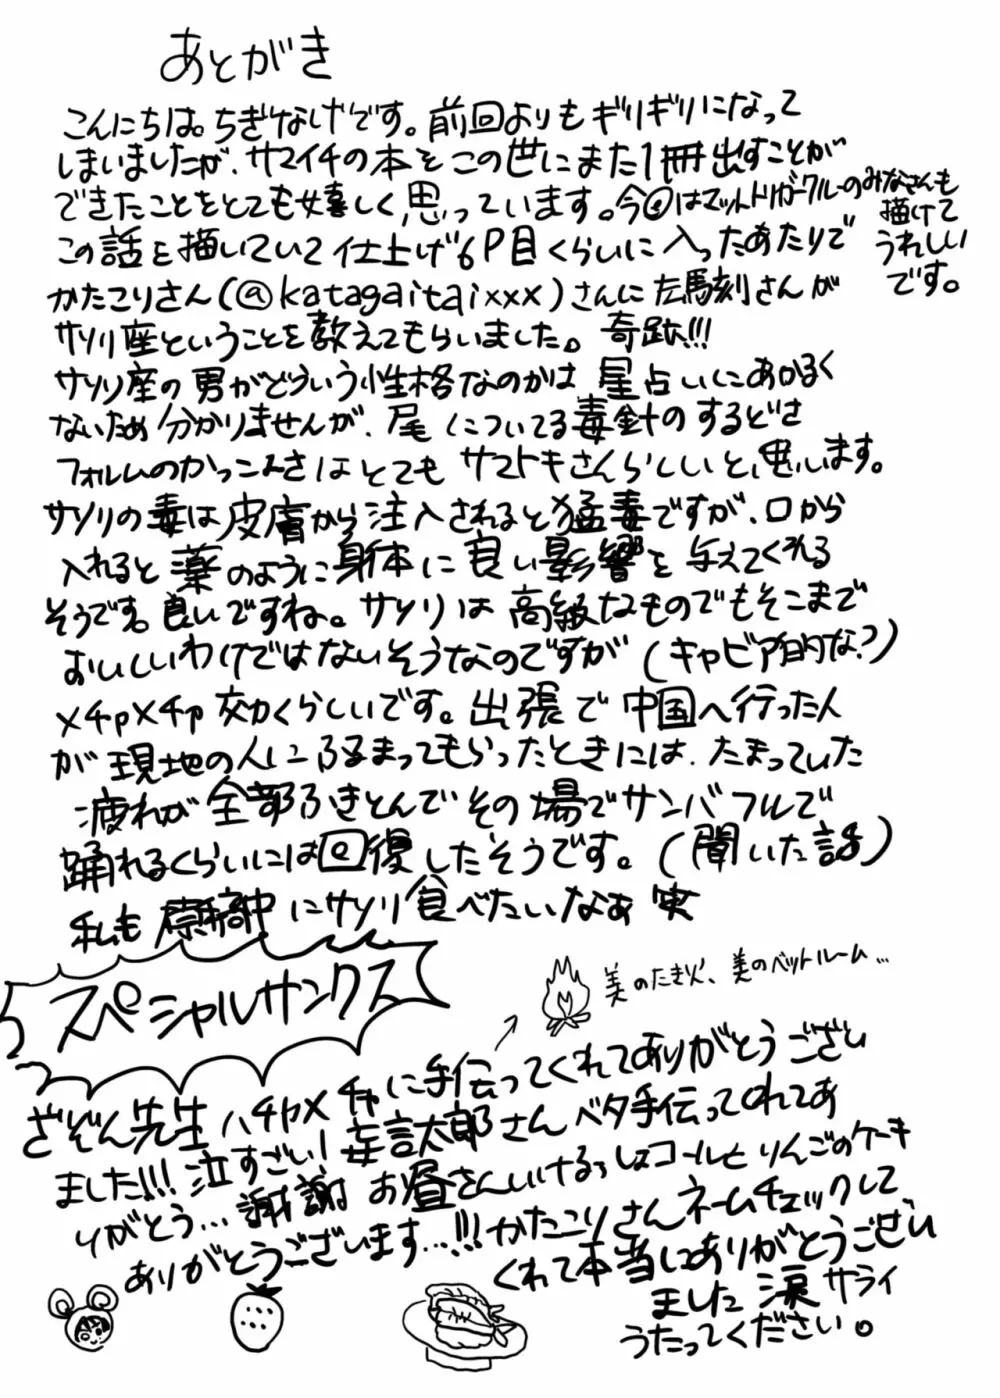 あとがき
こんにちは。ちぎなげです。前回よりもギリギリになって
しまいましたが、サマイチの本をこの世にまた1冊出すことが
できたことをとても嬉しく思っています。今回はマッドトリガークルーのみなさんも
描けて
うれしい
です。
この話を描いていて仕上げ6P目くらいに入ったあたりで
かたこりさん(@katagaitaixxx)さんに左馬刻さんが
サソリ座ということを教えてもらいました。奇跡!!!
サソリ座の男がどういう性格なのかは星占いにあかるく
ないため分かりませんが、尾についてる毒針のするどさ
フォルムのかっこよさはとてもサマトキさんらしいと思います。
サソリの毒は皮膚から注入されると猛毒ですが、口から
入れると薬のように身体に良い影響を与えてくれる
そうです。良いですね。サソリは高級なものでもそこまで
おいしいわけではないそうなのですが(キャビア的な?)
メチャメチャ効くらしいです。出張で中国へ行った人
が現地の人にふるまってもらったときには、たまっていた
疲れが全部ふきとんでその場でサンバフルで
踊れるくらいには回復したそうです。(聞いた話)
私も原稿中にサソリ食べたいなぁ 笑
スペシャルサンクス
美のたき火、美のベットルーム…
ざぞん先生ハチャメチャに手伝ってくれてありがとうござい
ました!!!泣すごい!妄言太郎さんベタ手伝ってくれてあ
りがとう…謝謝 お昼さんいけるっしょコールとりんごのケーキ
ありがとうございます…!!!かたこりさんネームチェックして
くれて本当にありがとうござい
ました涙 サライ
うたってください。